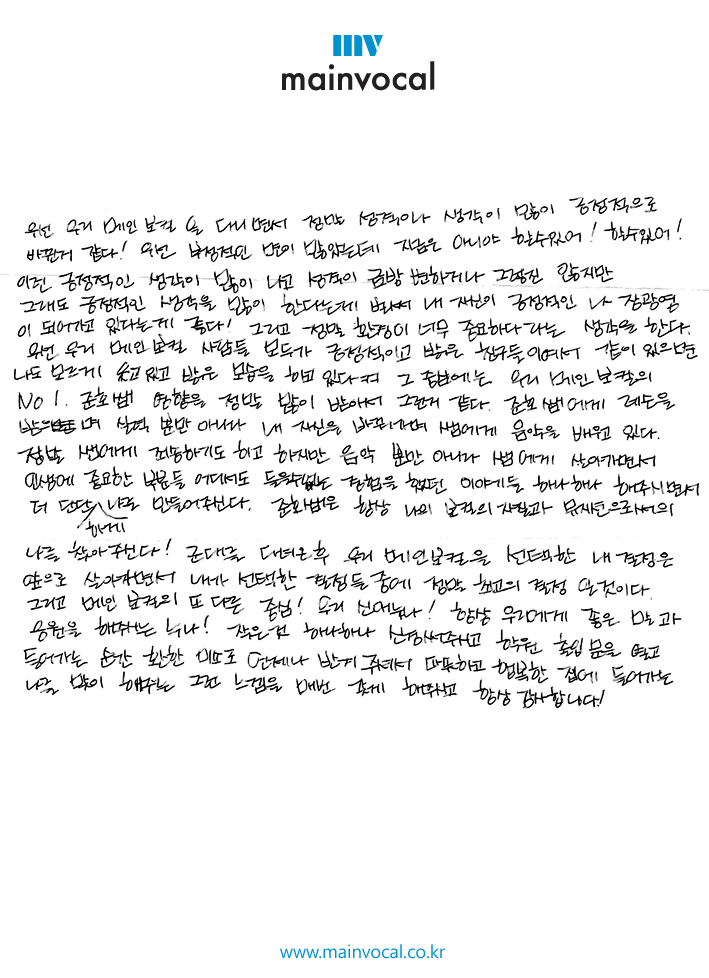 mv
mainvocal
우선 우리 메인 보컬 을 다니면서 정말 성격이나 생각이 많이 긍정적으로
바뀐거 같다! 우선 부정적인 면이 많았는데 지금은 아니야 할수있어! 할수있어!
이런 긍정적인 생각이 많이 나고 성격이 금방 변하거나 그러진 않지만
그래도 긍정적인 생각을 많이 한다는게 바뀌서 내 자신이 긍정적인 나 장광열
이 되어가고 있다는게 좋다! 그리고 정말 환경이 너무 중요하다 라는 생각을 한다.
우선 우리 메인보컬 사람들 모두가 긍정적이고 밝은 친구들이여서 같이 있으면
나도 모르게 웃고 있고 밝은 모습을 하고 있다 그 중심에는 우리 메인 보컬의
No 1. 준호쌤 영향을 정말 많이 받아서 그런거 같다. 준호쌤에게 레슨을
받으며 실력 뿐만 아니라 내 자신을 바뀌가며 쌤에게 음악을 배우고 있다.
정말 쌤에게 죄송하기도 하고 하지만 음악 뿐만 아니라 쌤에게 살아가면서
인생에 중요한 부분들 어디서도 들을수없는 경험을 했던 이야기들 하나하나 해주시면서
더 단단하게 나를 만들어주신다. 준호쌤은 항상 나의 보컬의 자질과 뮤지션으로서의
나를 찾아주신다! 군대를 다녀온후 우리 메인보컬을 선택한 내 결정은
앞으로 살아가면서 내가 선택한 결정들 중에 정말 최고의 결정 일것이다.
그리고 메인 보컬의 또 다른 중심! 우리 누나! 항상 우리에게 좋은 말 과
응원을 해주시는 누나! 작은것 하나하나 신경써주시고 학원 출입 문을 열고
들어가는 순간 환한 미소로 언제나 반겨 주셔서 따뜻하고 행복한 집에 들어가는
나를 많이 해주는 그런 느낌을 매번 갖게 해주시고 항상 감사합니다!
www.mainvocal.co.kr